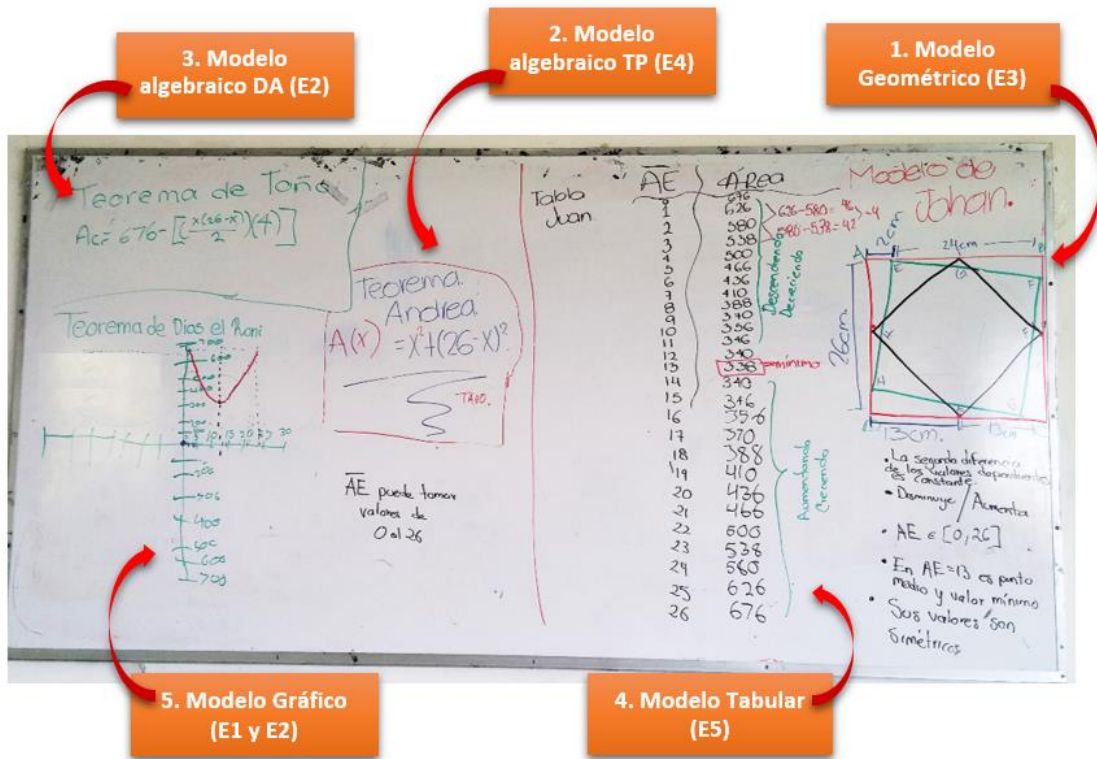 3. Modelo
algebraico DA (E2)
2. Modelo
algebraico TP (E4)
1. Modelo
Geométrico (E3)
Teorema de Toño
Ac= 676-[(x(26-x)/2)(4)]
Teorema de Dios el Rani
700
600
5 10 15 20 25 30
400
600
700
Teorema
Andrea
A(x) = x²+(26-x)²
TAPO.
AE puede tomar
valores de
0 al 26
Tabla
Juan
AE Area
0 676
1 626
2 580
3 538
4 500
5 466
6 436
7 410
8 388
9 370
10 356
11 346
12 340
13 338 mínimo
14 340
15 346
16 356
17 370
18 388
19 410
20 436
21 466
22 500
23 538
24 580
25 626
26 676
626-580=46
580-538=42
-4
Descendiendo
Decreciendo
Aumentando
Creciendo
Modelo de
Johan.
2cm 24cm
A E G B
F
26cm.
H
G
13cm. 13cm
• La segunda diferencia
de los valores dependientes
es constante.
• Disminuye / Aumenta
• AE ∈ [0,26]
• En AE=13 es punto
medio y valor mínimo
• Sus valores son
simétricos
5. Modelo Gráfico
(E1 y E2)
4. Modelo Tabular
(E5)